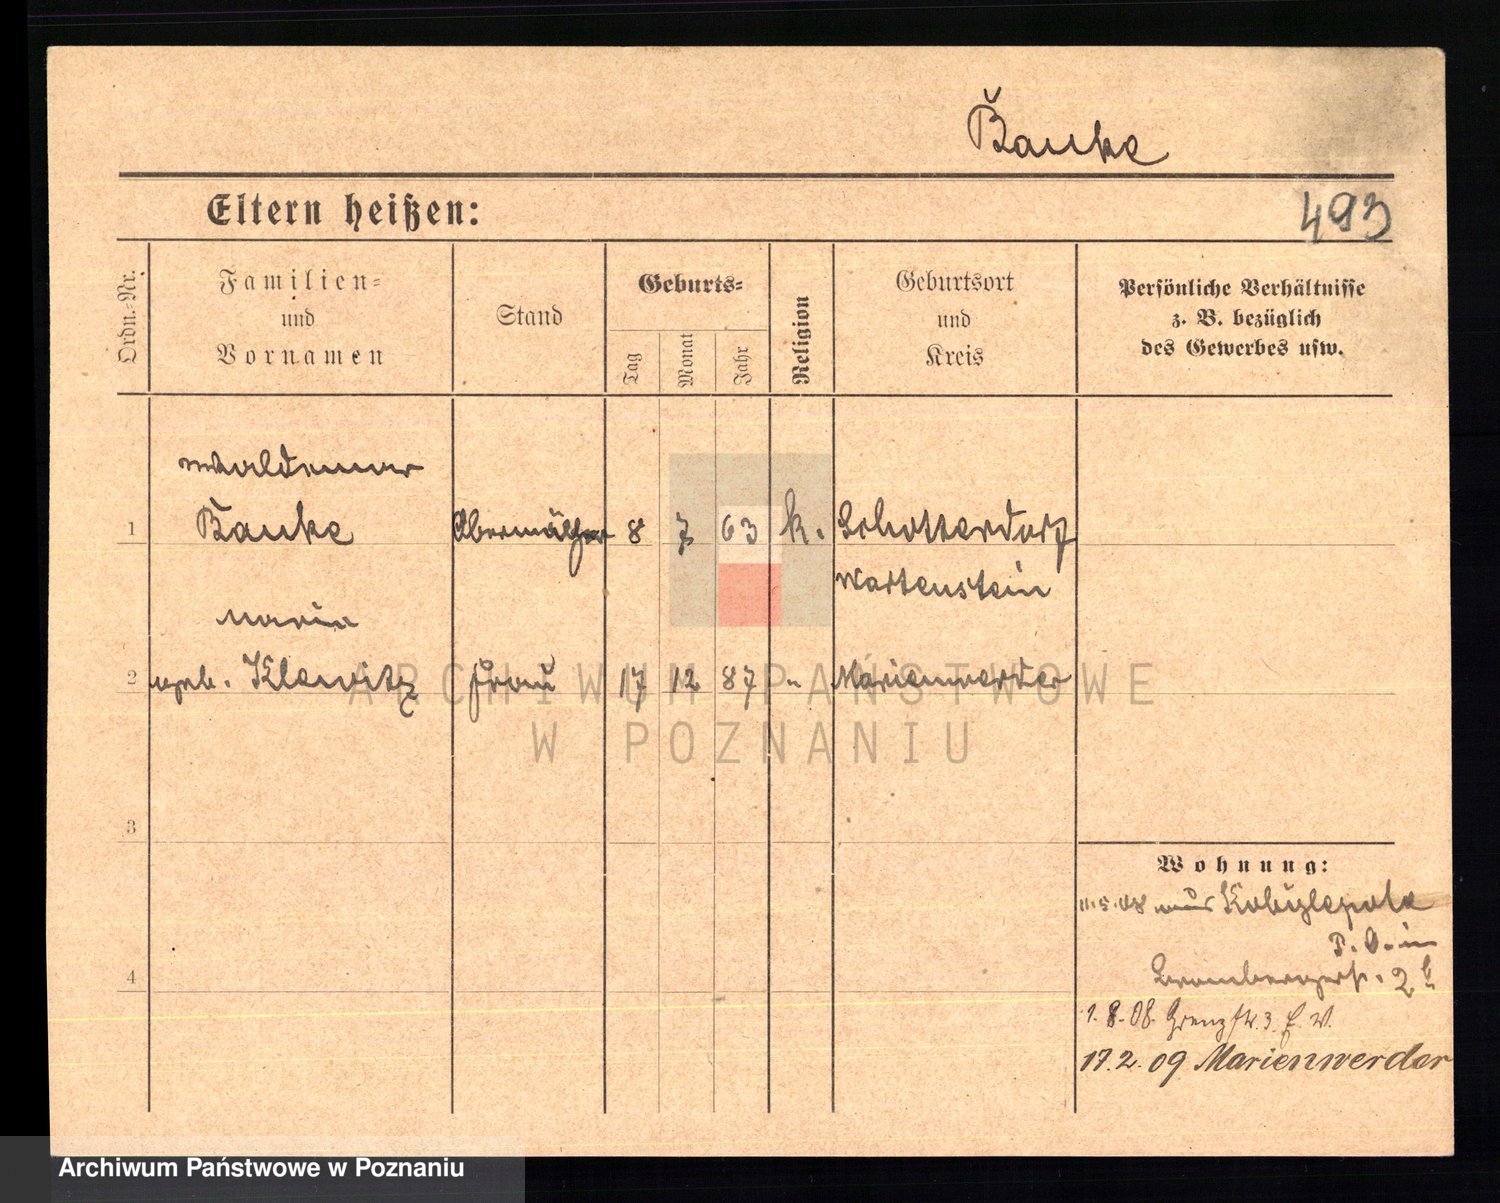 Banke
Eltern heißen:
493
Ordn.-Nr.
Familien-
und
Vornamen
Stand
Geburts-
Tag
Monat
Jahr
Religion
Geburtsort
und
Kreis
Persönliche Verhältnisse
z. B. bezüglich
des Gewerbes usw.
Waldemar
1 Banke 8 7 63 k. Schotterdorf
Wartenstein
Maria
2 geb. Klawitz Frau 17 12 87 " Marienwerder
ARCHIWUM PAŃSTWOWE
W POZNANIU
3
Wohnung:
11.5.08 aus Kobylepole
P. O. in
4 Brombergerstr. 2
1. 8. 08. Grenzstr. 3. E. W.
17. 2. 09 Marienwerder
Archiwum Państwowe w Poznaniu